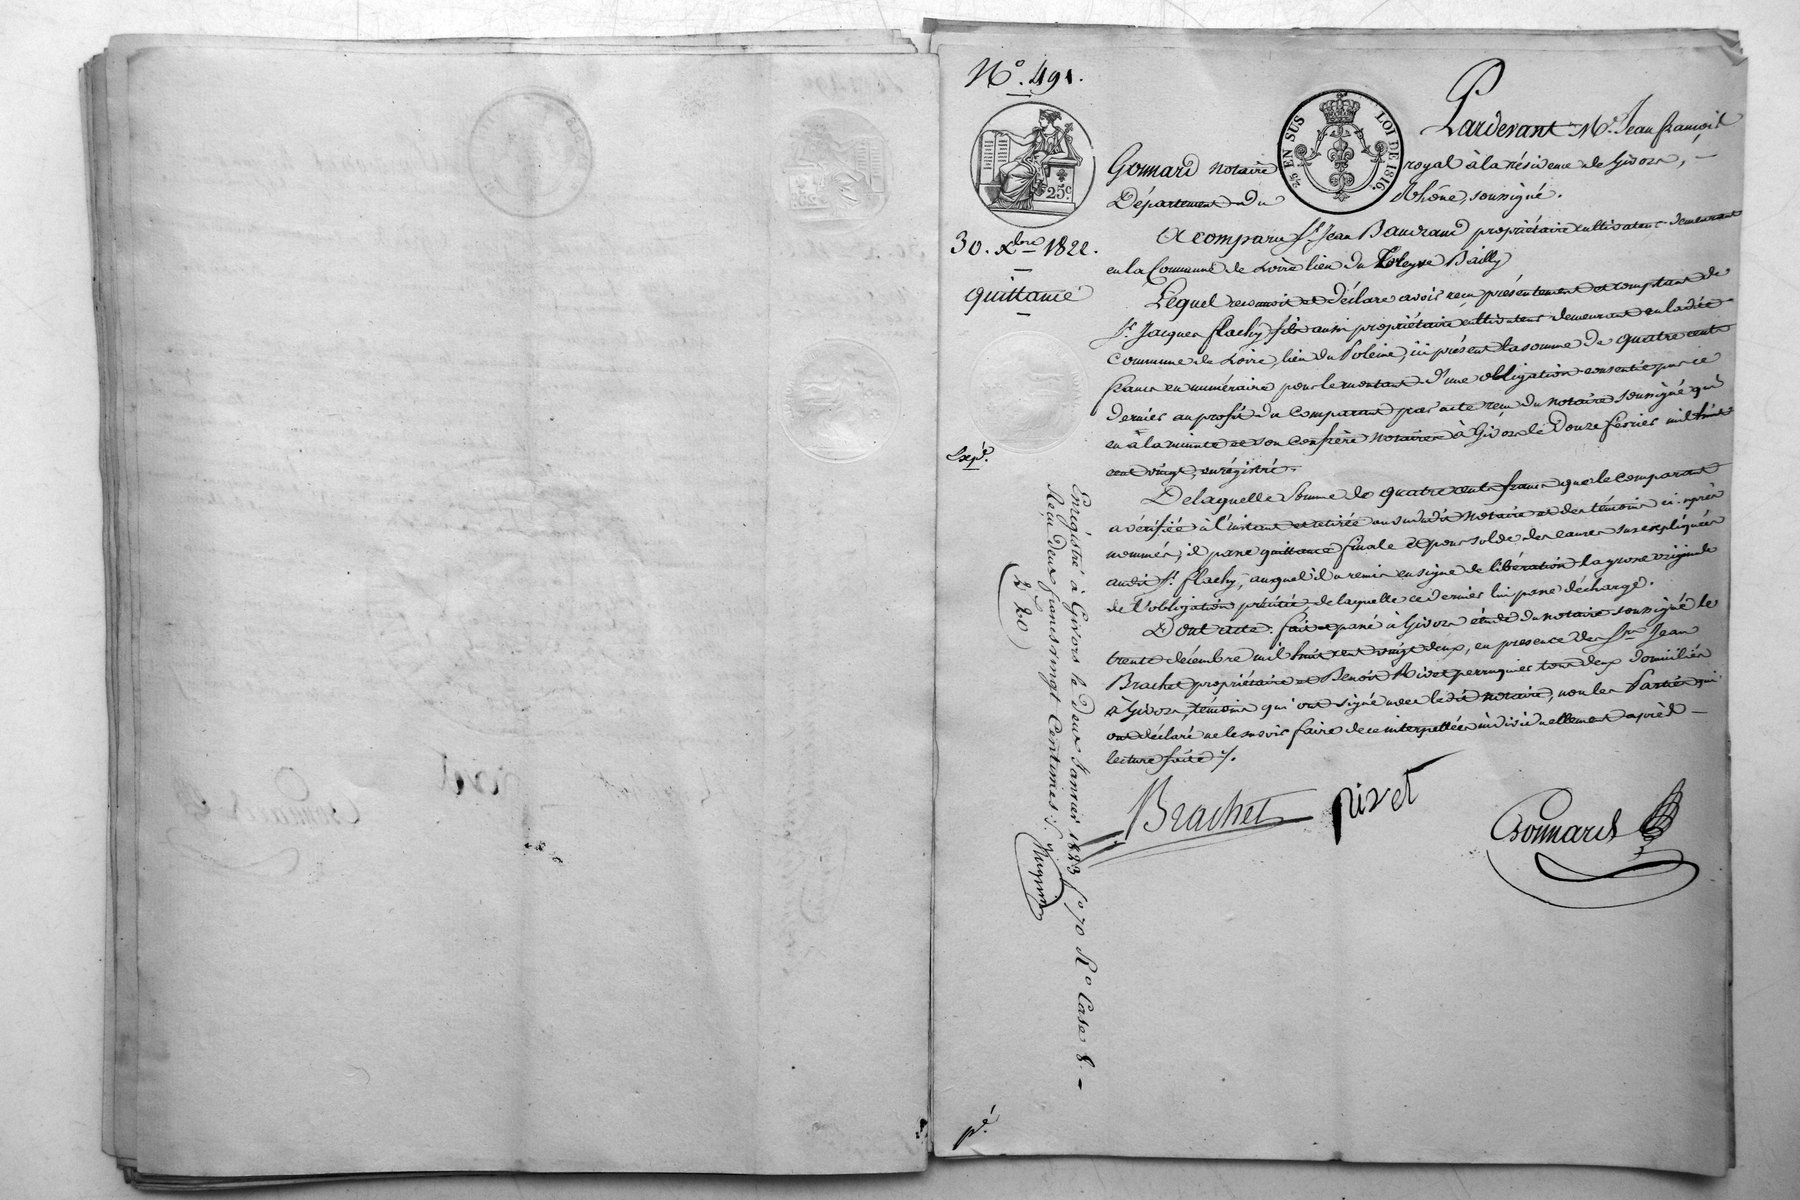 N.º 491.
25.c
5/2 EN SUS LOI DE 1816.
30. Xbre 1822.
quittance
Expé.
Pardevant Me. Jean françois
Gonnard notaire royal à la résidence de Givors, —
Département du Rhône, soussigné.
A comparu Sr. Jean Baudrand propriétaire cultivateur demeurant
en la Commune de Loire lieu du Bailly
Lequel reconnoit et déclare avoir reçu présentement et comptant de
Sr. Jacques flachy fils aussi propriétaire cultivateur demeurant en ladite
Commune de Loire, lieu du ici présent la somme de quatre cents
francs en numéraire pour le montant d'une obligation consentie par ce
dernier au profit du Comparant par acte reçu du notaire soussigné qui
en à la minute et son confrère notaires à Givors le Douze février mil huit
cent vingt, enrégistré.
De laquelle Somme de quatre cents francs que le comparant
a vérifiée à l'instant et retirée au su dudit notaire et des témoins ci-après
nommés, il passe quittance finale et pour solde des causes sus expliquées
audit Sr. flachy, auquel il a remis en signe de libération la grosse originale
de l'obligation précitée de laquelle ce dernier lui passe décharge.
Dont acte: fait et passé à Givors étude du notaire soussigné le
trente décembre mil huit cent vingt deux, en presence des Srs. Jean
Brachet propriétaire et Benoit Rivet perruquier tous deux domiciliés
à Givors, témoins qui ont signé avec ledit notaire, non les Parties qui
ont déclaré ne le savoir faire de ce interpellées individuellement après —
lecture faite ./.
Brachet rivet Gonnard
Enrégistré à Givors le Deux Janvier 1823 fo 70 Ro Case 8. —
Reçu deux francs vingt Centimes ./.
2 20
pé.